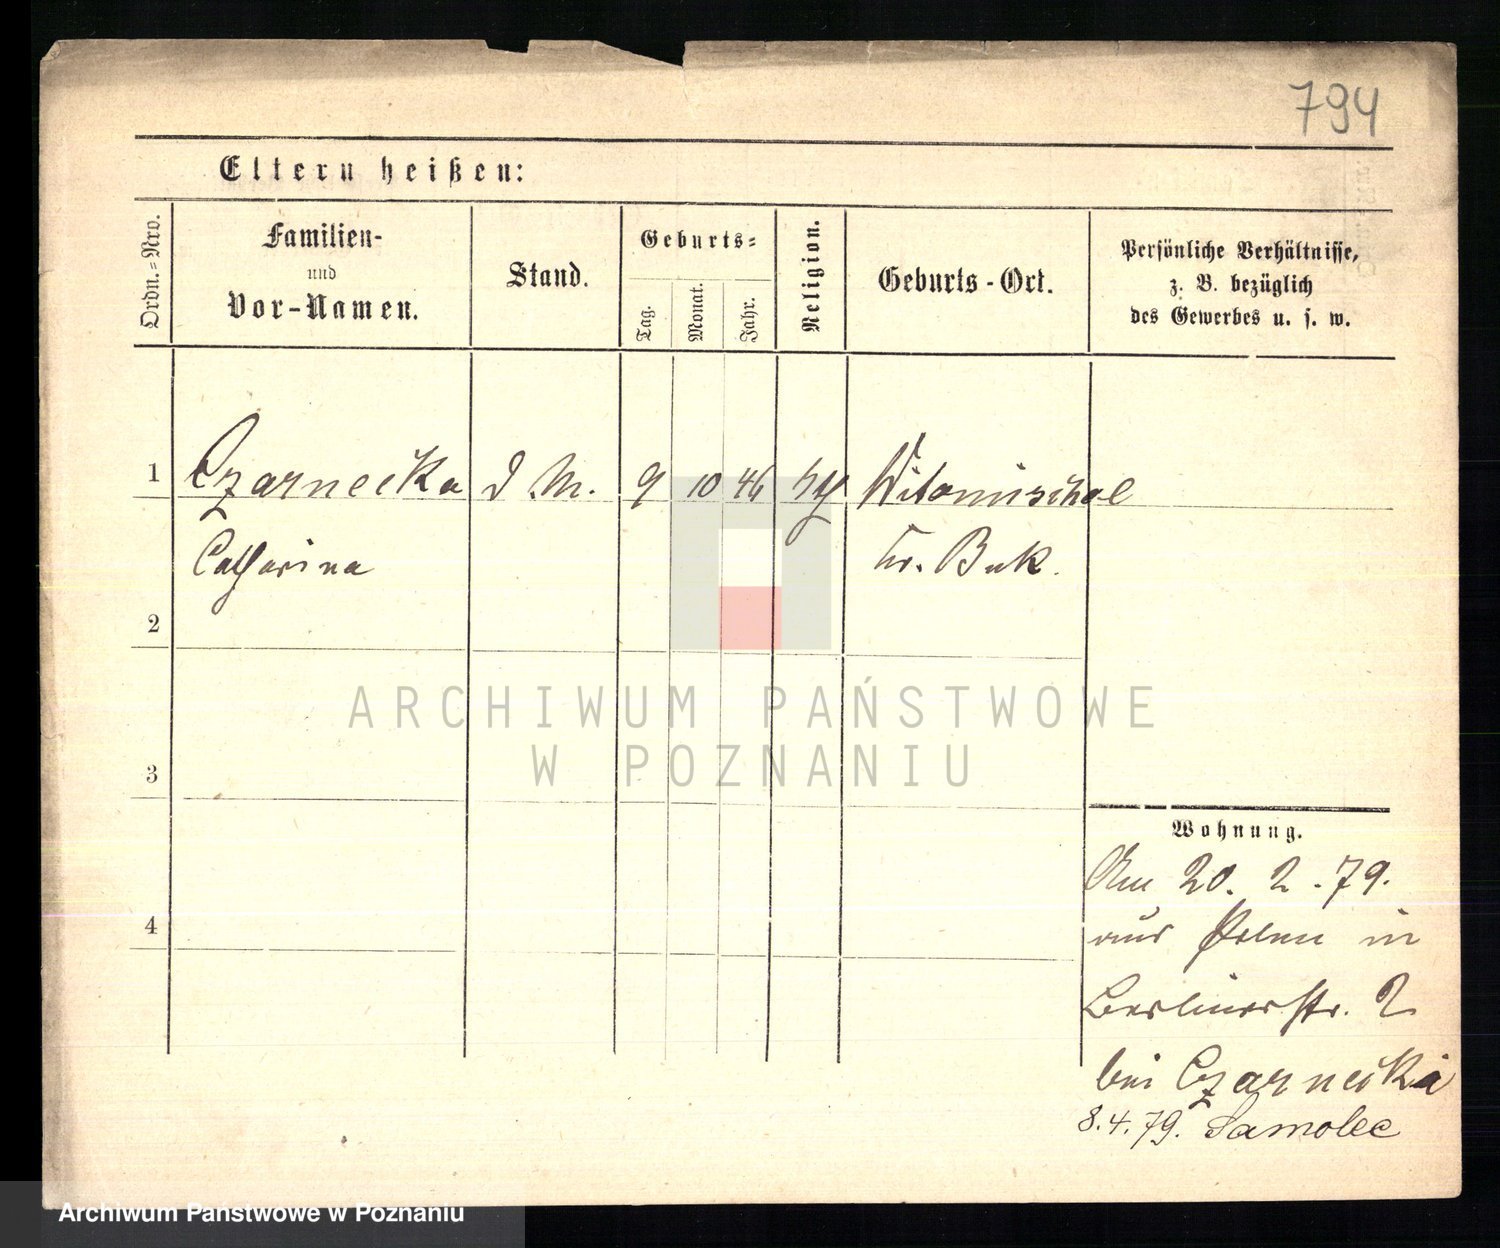 794
Eltern heißen:
Ordn.-Nro.
Familien-
und
Vor-Namen.
Stand.
Geburts-
Tag.
Monat.
Jahr.
Religion.
Geburts-Ort.
Persönliche Verhältnisse,
z. B. bezüglich
des Gewerbes u. s. w.
1 Czarnecka D. M. 9 10 46 Witomischel
Catharina Kr. Buk.
2
3
4
ARCHIWUM PAŃSTWOWE
W POZNANIU
Wohnung.
Am 20. 2. 79.
aus Polen in
Berlinerstr. 2
bei Czarnecki
8.4.79. Samolec
Archiwum Państwowe w Poznaniu